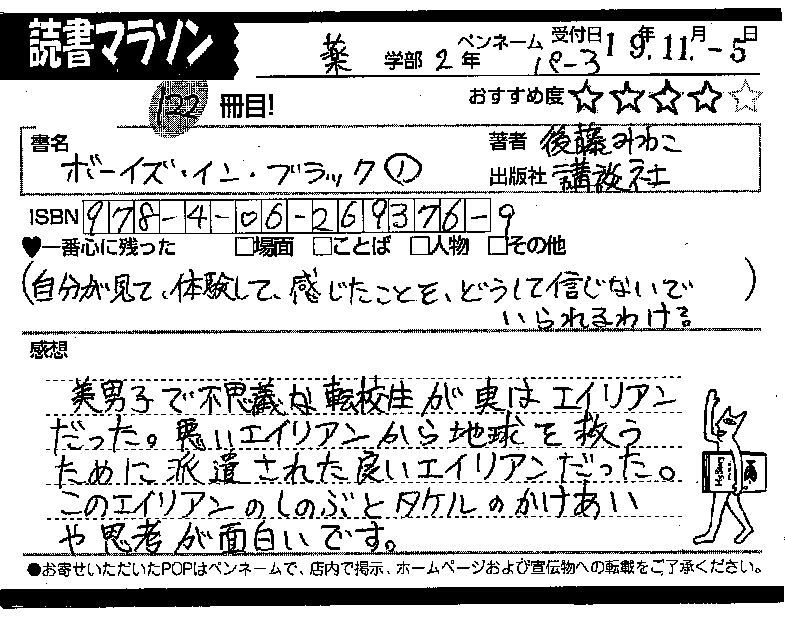 読書マラソン
薬 学部 2年 ペンネーム P-3 受付日 19年.11.月-5日
122 冊目!
おすすめ度 ☆☆☆☆☆
書名 ボーイズ・イン・ブラック①
著者 後藤みわこ
出版社 講談社
ISBN 978-4-06-269376-9
♥一番心に残った □場面 □ことば □人物 □その他
(自分が見て、体験して、感じたことを、どうして信じないで
いられるわけ?)
感想
美男子で不思議な転校生が実はエイリアン
だった。悪いエイリアンから地球を救う
ために派遣された良いエイリアンだった。
このエイリアンのしのぶとタケルのかけあい
や思考が面白いです。
●お寄せいただいたPOPはペンネームで、店内で掲示、ホームページおよび宣伝物への転載をご了承ください。